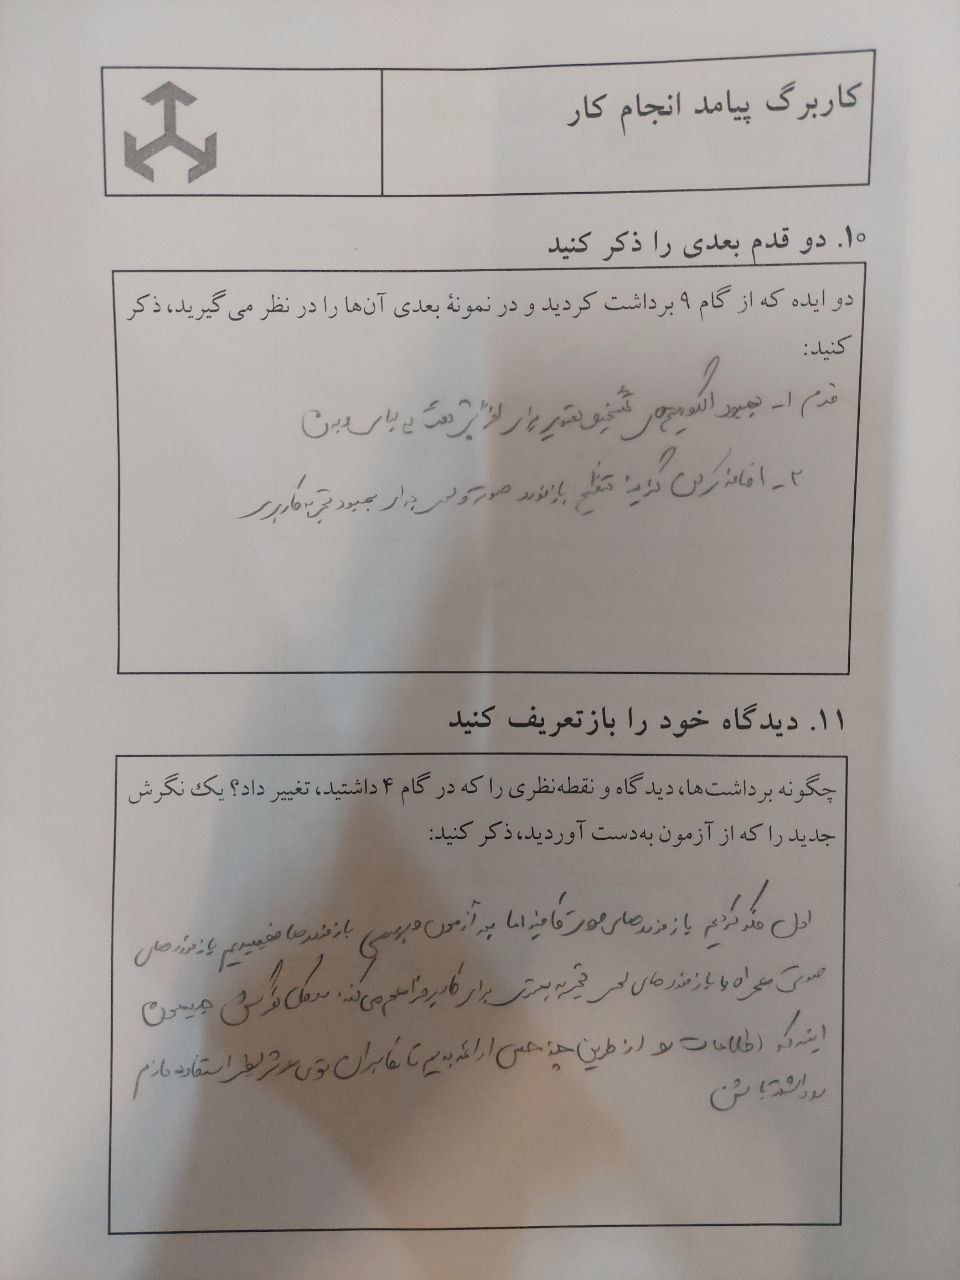 کاربرگ پیامد انجام کار
۱۰. دو قدم بعدی را ذکر کنید
دو ایده که از گام ۹ برداشت کردید و در نمونهٔ بعدی آن‌ها را در نظر می‌گیرید، ذکر
کنید:
قدم ۱- بهبود الگوریتم‌های تشخیص تصویر برای افزایش دقت
۲- اضافه کردن گزینهٔ تنظیم بازخورد صوتی و لمسی برای بهبود تجربه کاربری
۱۱. دیدگاه خود را بازتعریف کنید
چگونه برداشت‌ها، دیدگاه و نقطه‌نظری را که در گام ۴ داشتید، تغییر داد؟ یک نگرش
جدید را که از آزمون به‌دست آوردید، ذکر کنید:
اول فکر کردیم بازخوردهای صوتی کافیه اما بعد آزمون و بررسی بازخوردها فهمیدیم بازخوردهای
صوتی همراه با بازخوردهای لمسی تجربه بهتری برای کاربر فراهم می‌کند. نگرش جدیدمون
اینه که اطلاعات رو از طریق چند حس ارائه بدیم تا کاربران توی هر شرایط استفاده لازم
رو داشته باشن